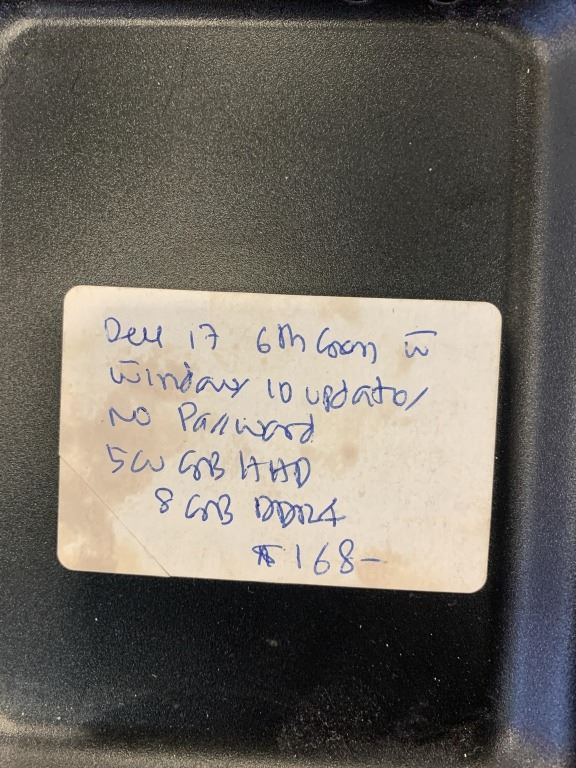 Dell i7 6th Gen w
Windows 10 updator
NO Password
500 GB HHD
8 GB DDR4
$168-